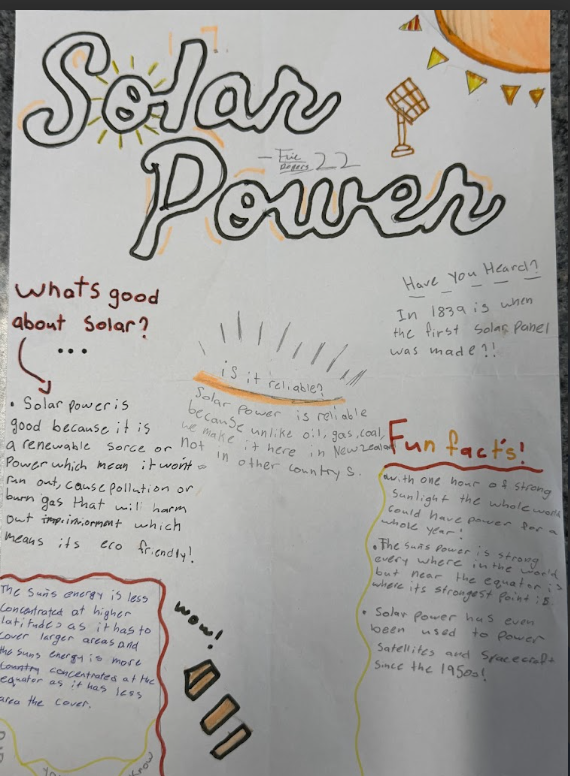 Solar
Power
22
Whats good
about Solar?
...
• Solar power is
good because it is
a renewable sorce or
Power which mean it wont
run out, cause pollution or
burn gas that will harm
out which
means its eco friendly!
is it reliable?
Solar power is reliable
because unlike oil, gas, coal,
we make it here in New Zealand
not in other country s.
Have You Heard?
In 1839 is when
the first solar panel
was made?!!
Fun fact's!
• with one hour of strong
sunlight the whole world
could have power for a
whole year!
• The suns power is strong
every where in the world
but near the equator is
where its strongest point is.
• Solar power has even
been used to power
satellites and spacecraft
since the 1950s!
The suns energy is less
concentrated at higher
latitudes as it has to
cover larger areas and
the suns energy is more
country concentrated at the
equator as it has less
area the cover.
wow!
know